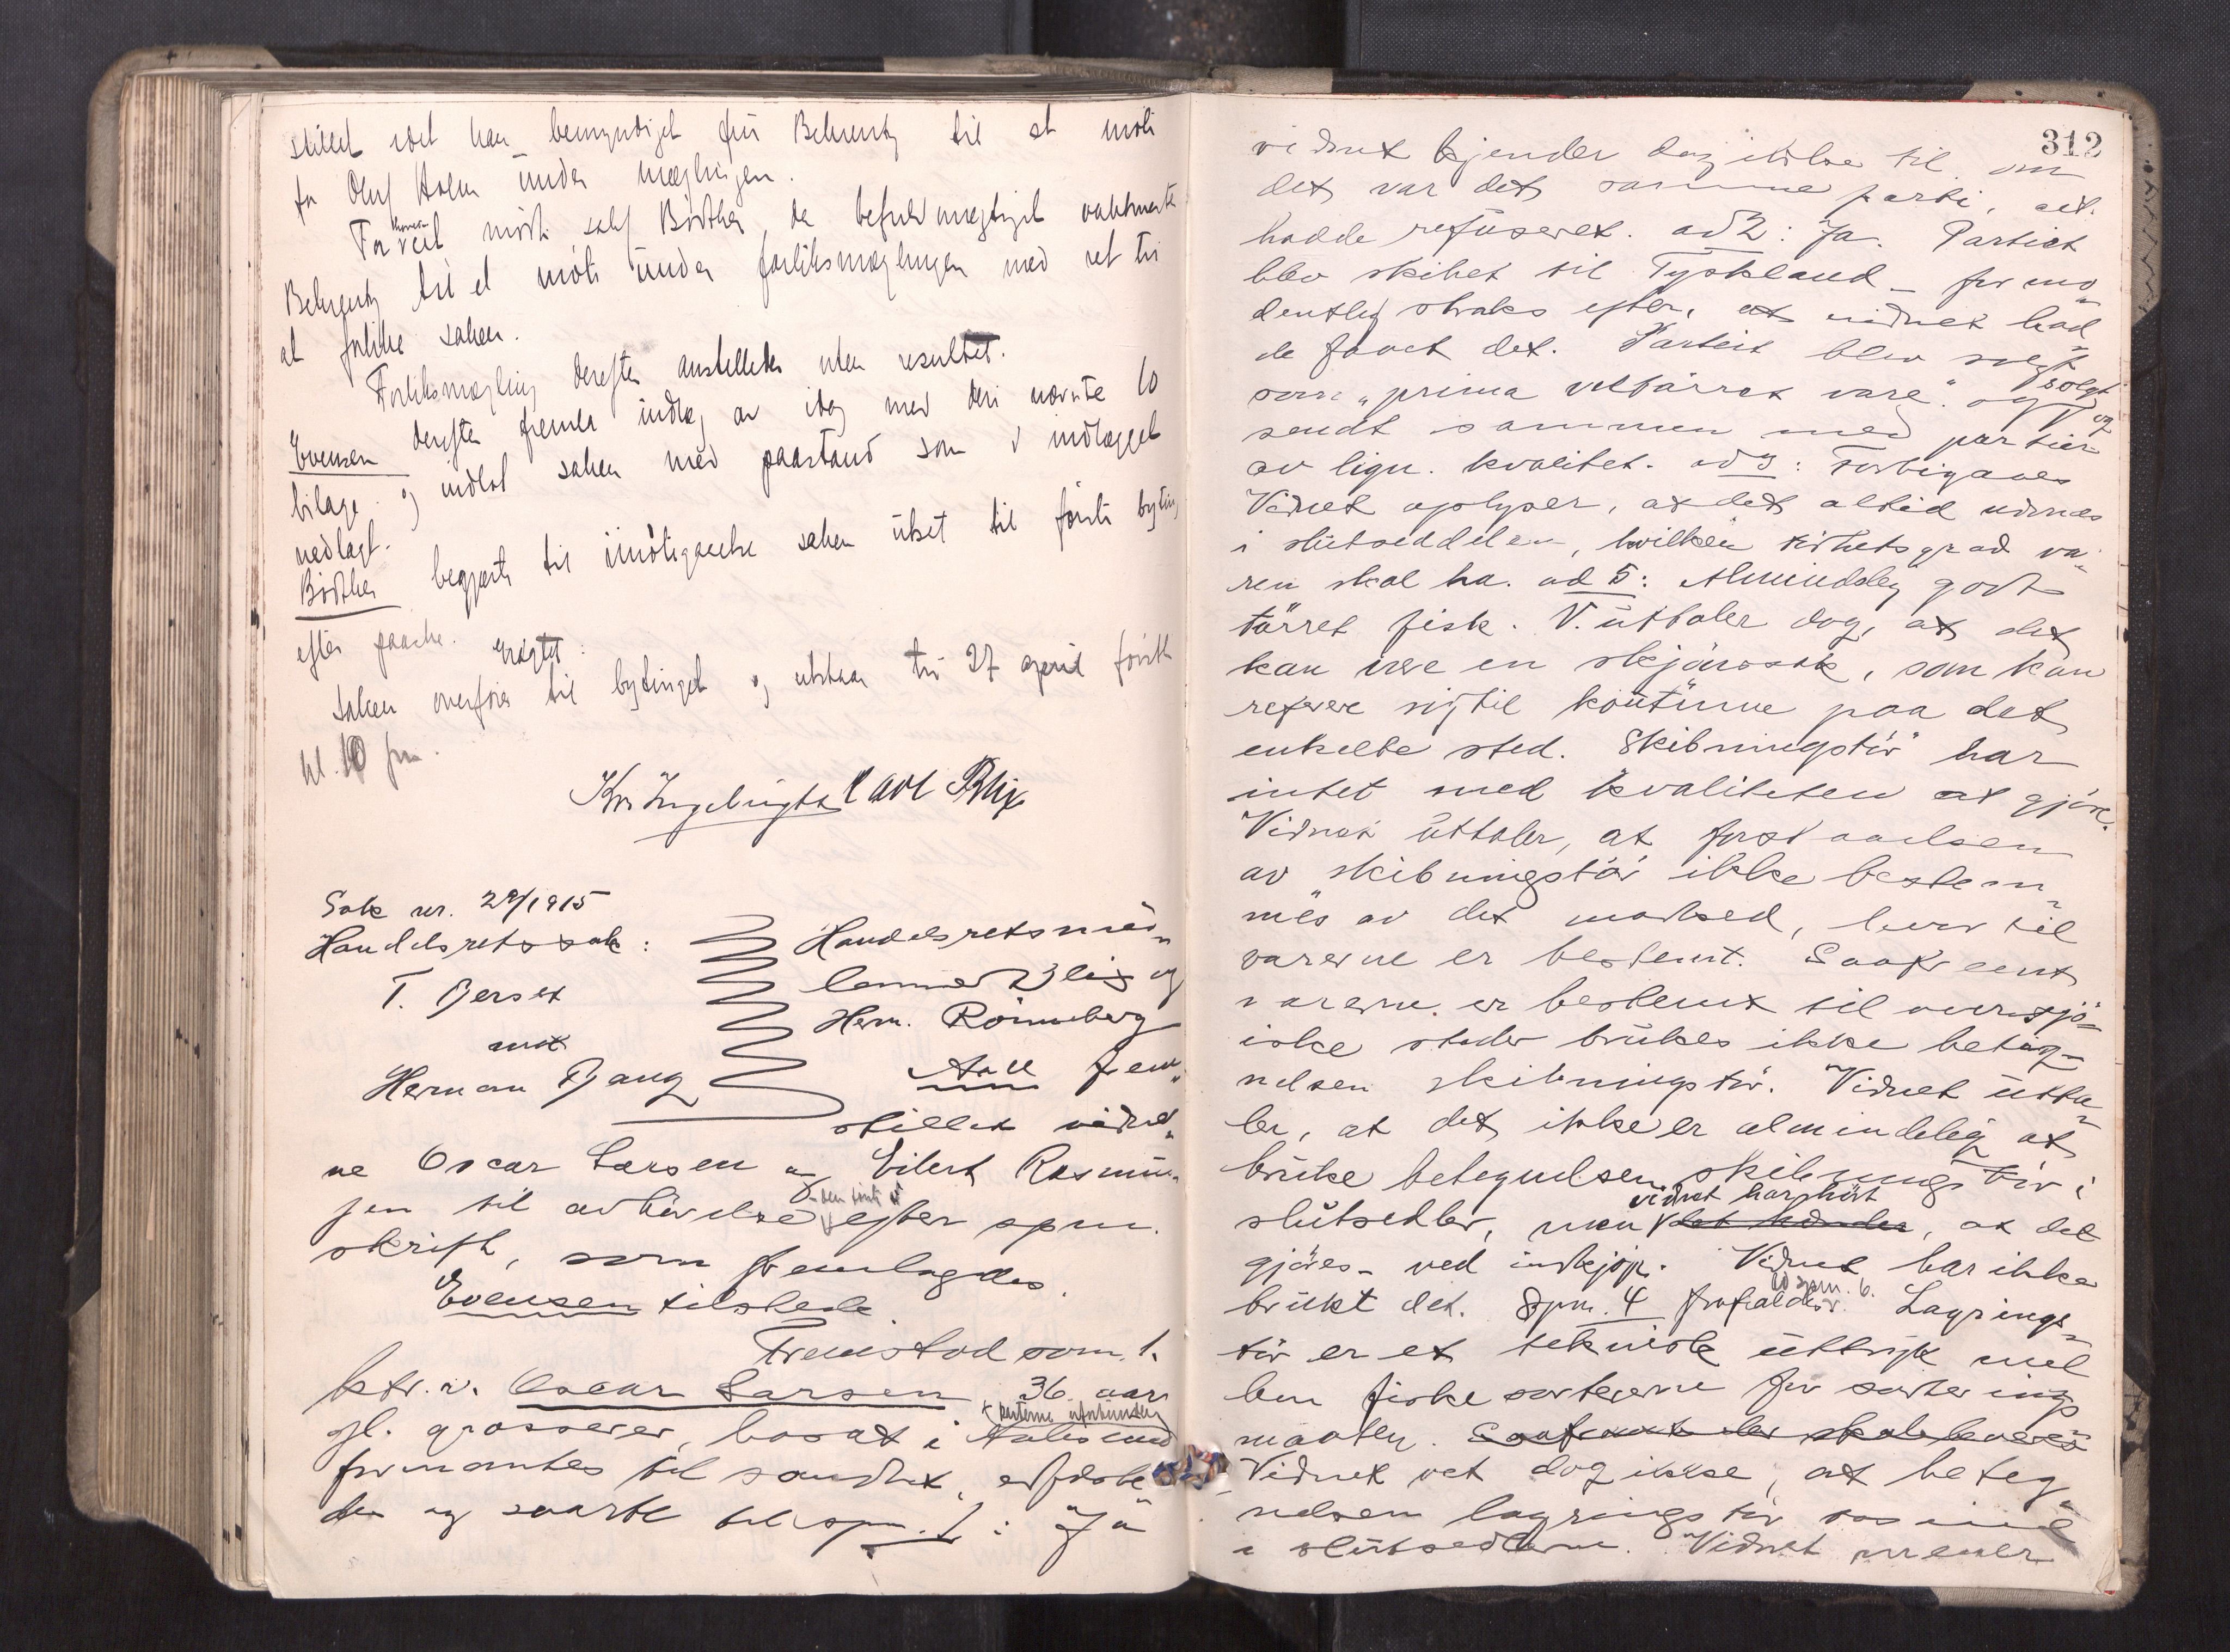 stillet idet han bemyndiget fra Behrentz til at møte
for Oluf Holm under mæglingen.
For møtte sakf Bödtker, da befuldmægtiget
Behrentz til at møte under forliksmæglingen med ret til
at forlike saken.
Forliksmægling derefter anstilledes uten resultat.
Evensen derefter fremla indlæg av idag med deri nævnte 10
bilage og indlot saken med paastand som i indlægget
nedlagt.
Bödtker begjærte til imøtegaaelse saken utsat til første byting
efter paaske.
Eragtet:
Saken overføres til bytinget og utstaar til 27 april førstk
kl. 10 fm.
Kr Ingebrigts Carl Blix
Sak nr. 29/1915
Handelsretssak:
T. Berset
mot
Herman Bang
Handelsretsmed-
lemmer Blix og
Herm. Rönneberg
Aall frem-
stillet vidner-
ne Oscar Larsen og Eilert Rasmus-
sen til avhörelse efter spm.
skrift, som fremlagdes.
Evensen tilstede
Fremstod som 1.
ktr. v. Oscar Larsen 36 aar
partene uforbunden
gl. grosserer, bosat i Aalesund
formantes til sandhet, edfæste-
des og svarte til spm. 1: Ja
312
vidnet kjender dog ikke til om
det var det samme parti, det
hadde refüseret. ad 2: Ja. Partiet
blev skibet til Tyskland - formo-
dentlig straks efter, at vidnet had-
de faaet det. Partiet blev solgt
som "prima veltörret vare" og solgt og
sendt sammen med partier
av lign. kvalitet. ad 3: Forbigaaes
Vidnet oplyser, at det altid nævnes
i slutseddelen, hvilken törhetsgrad va-
ren skal ha. ad 5: Almindelig godt
törret fisk. V. üttaler dog, at det
kan være en skjönssak, som kan
referere sig til koutüme paa det
enkelte sted. "Skibningstör" har
intet med kvaliteten at gjöre.
Vidnet üttaler, at forstaaelsen
av "skibningstör" ikke bestem-
mes av det marked, hvortil
varerne er bestemt. Saafremt
varerne er bestemt til oversjö-
iske steder brükes ikke beteg-
nelsen skibningstör. Vidnet ütta-
ler, at det ikke er almindelig at
brüke betegnelsen skibningstör i
slütsedler, men vidnet har hört, at det
gjöres ved indkjöp. Vidnet har ikke
brükt det. Spm. 4 frafaldes. ad spm. 6. Lagrings-
tör er et teknisk üttryk mel-
lem fiskesortererne for sorterings
maaten.
Vidnet vet dog ikke, at beteg-
nelsen lagringstör
i slütsedlerne. Vidnet mener